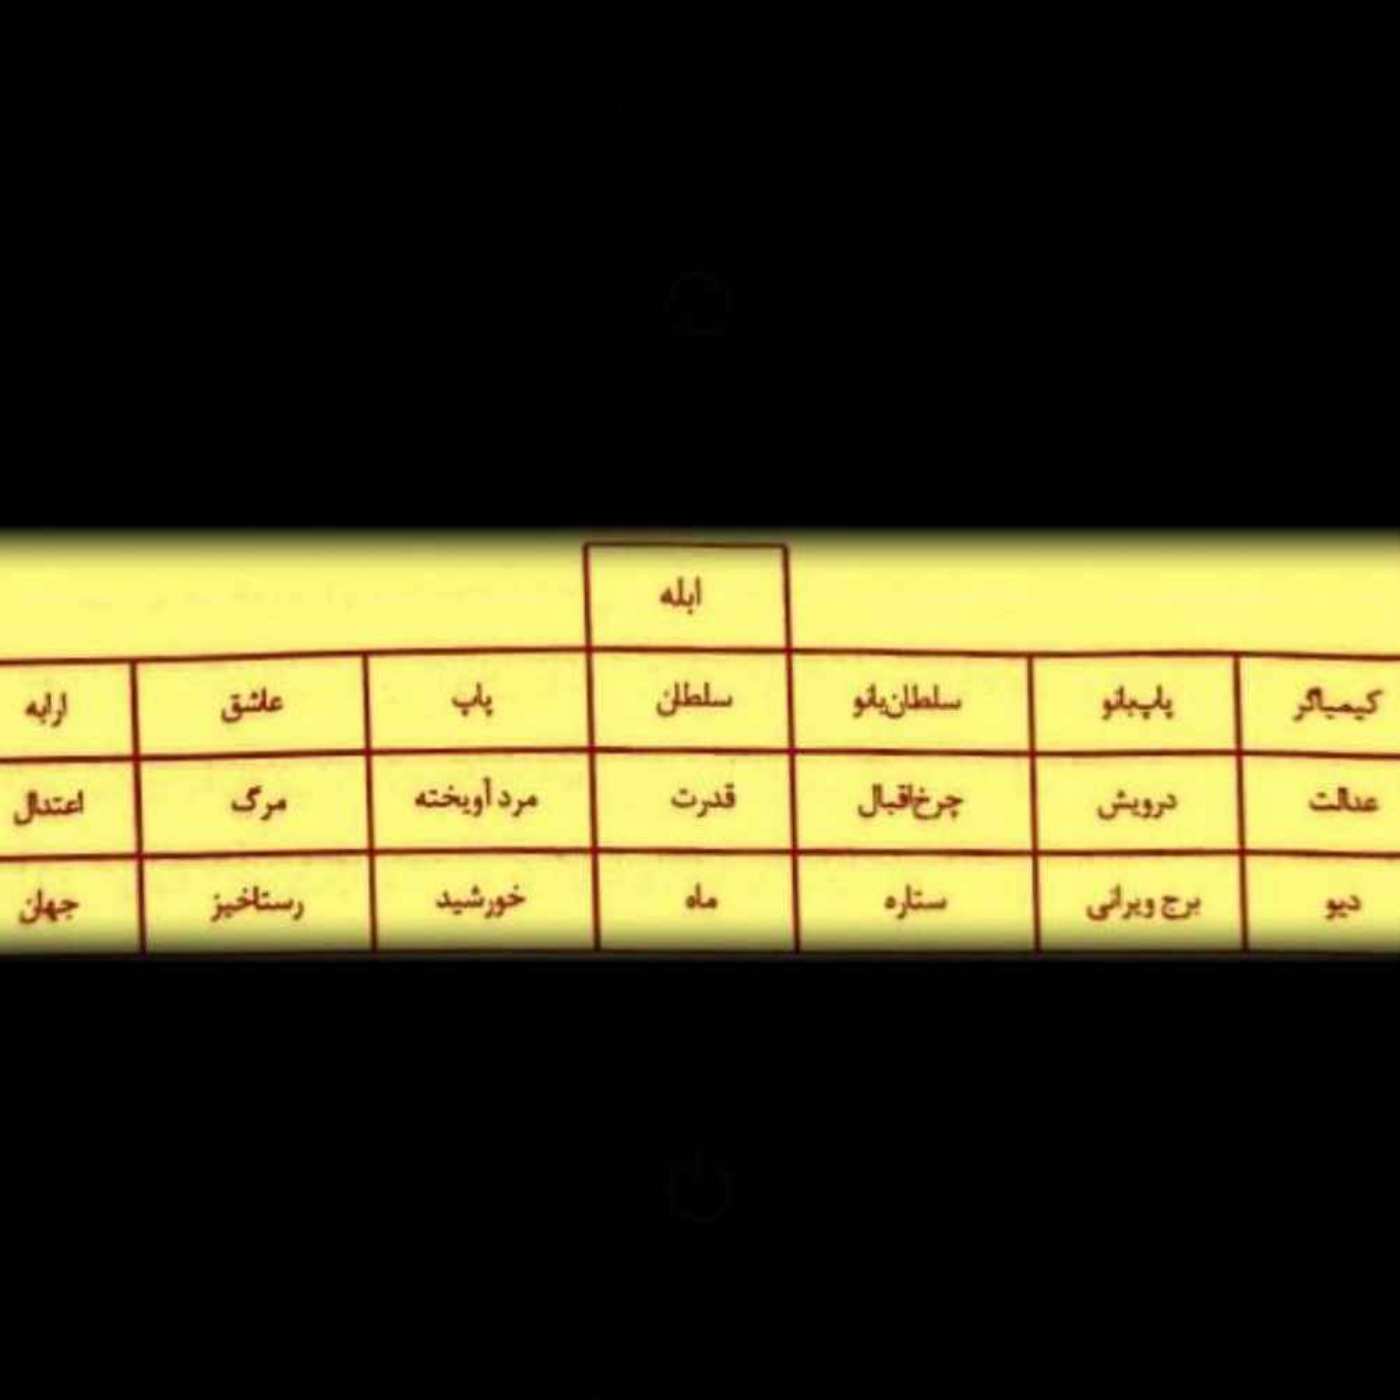 ابله
کیمیاگر پاپ‌بانو سلطان‌بانو سلطان پاپ عاشق ارابه
عدالت درویش چرخ‌اقبال قدرت مرد آویخته مرگ اعتدال
دیو برج ویرانی ستاره ماه خورشید رستاخیز جهان